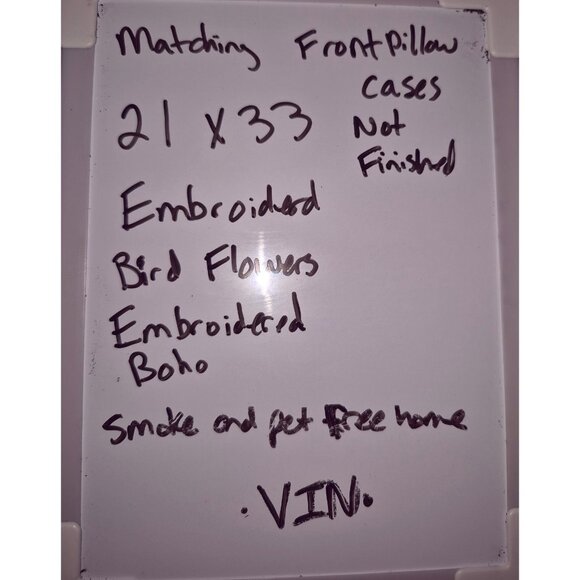 Matching Front Pillow
cases
21 x 33 Not
Finished
Embroiderd
Bird Flowers
Embroidered
Boho
Smoke and pet free home
. VIN.